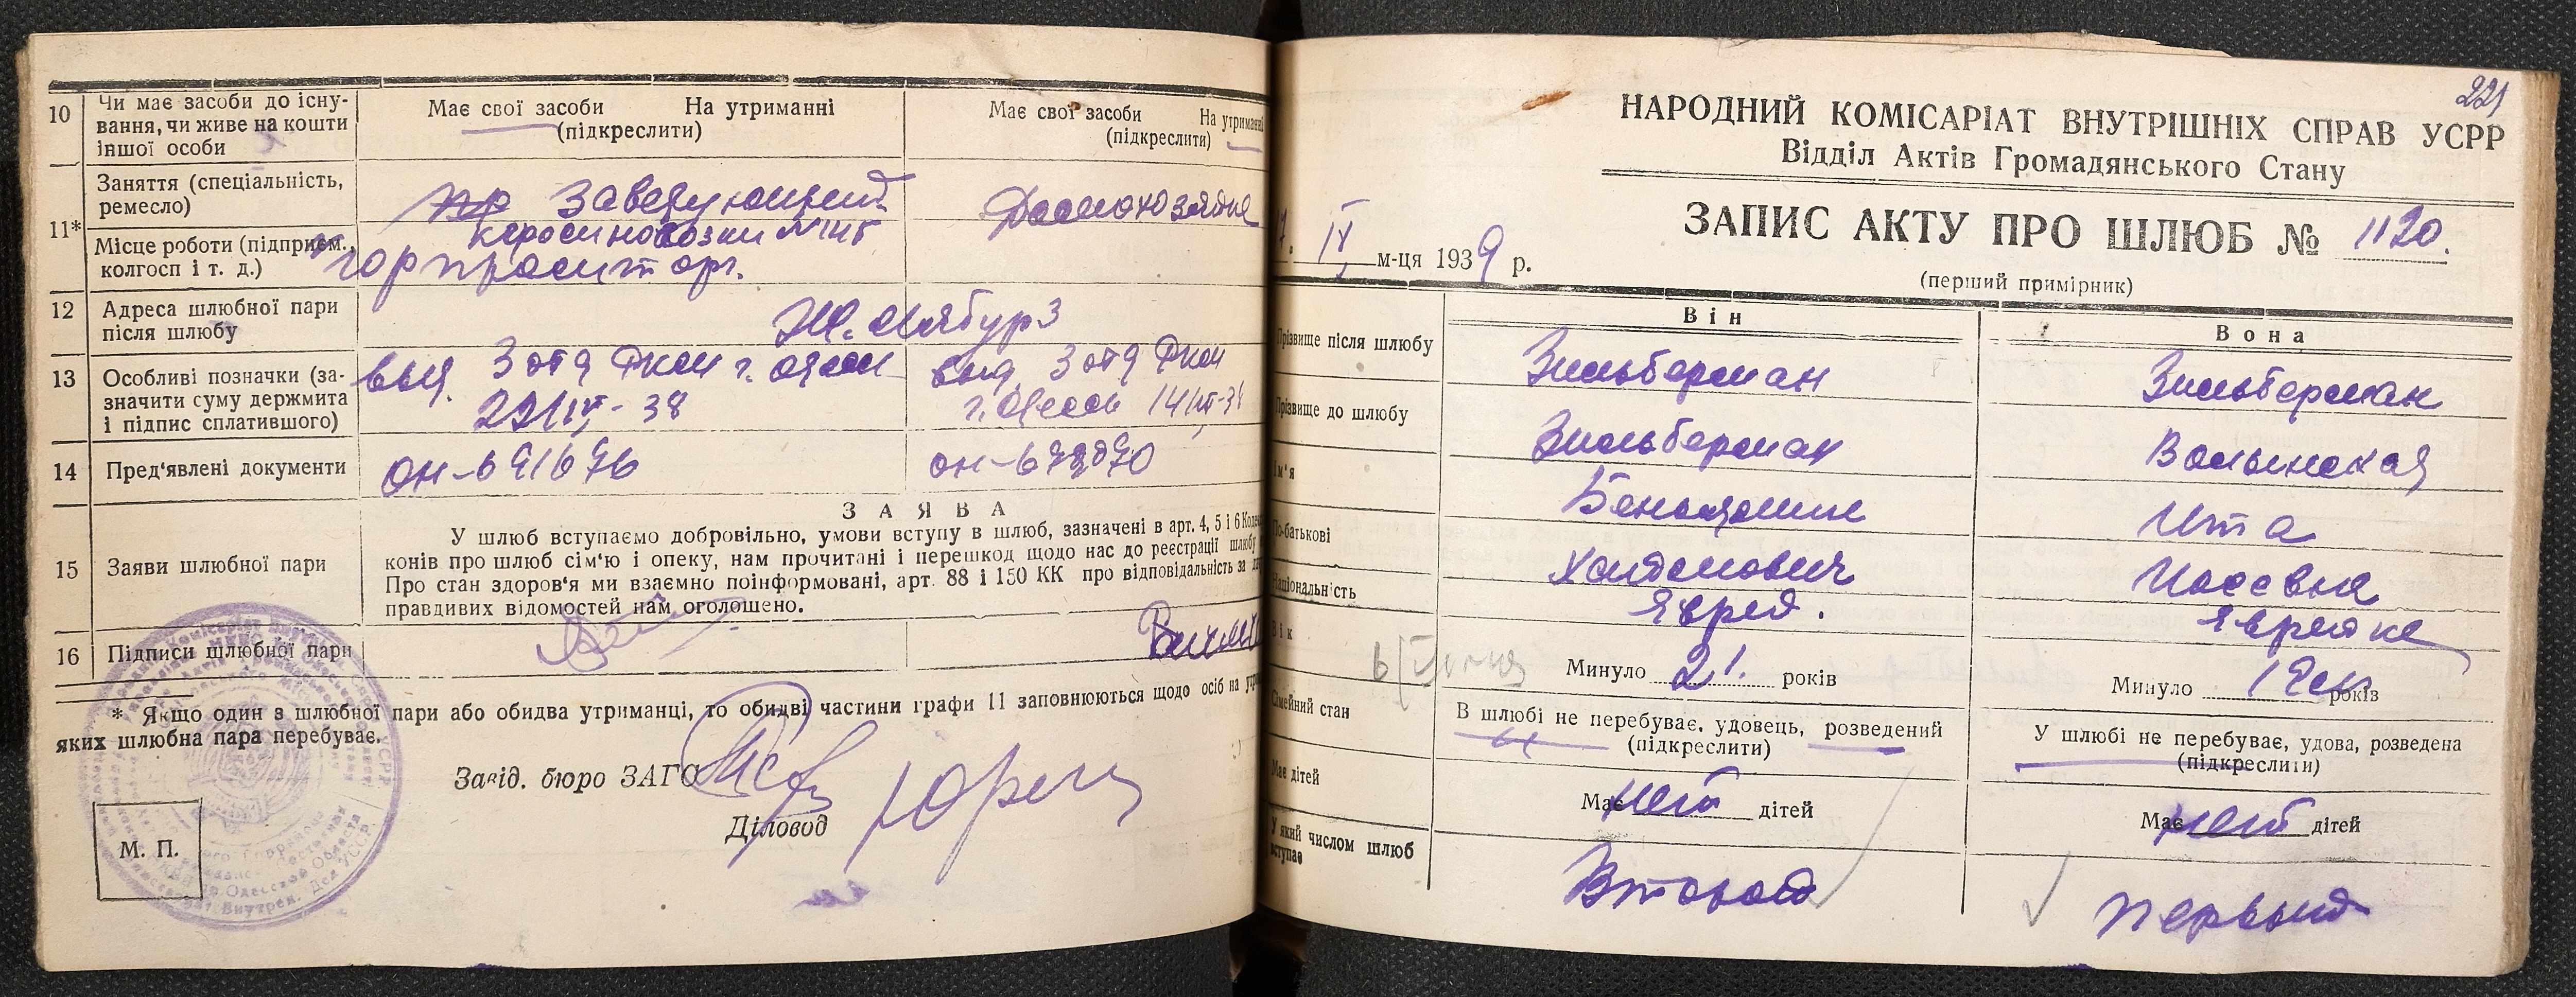 10
Чи має засоби до існу-
вання, чи живе на кошти
іншої особи
Має свої засоби На утриманні
(підкреслити)
Має свої засоби На утриманні
(підкреслити)
11*
Заняття (спеціальність,
ремесло)
Заведующий
Домохозяйка
керосинолавки №
Місце роботи (підприєм.,
колгосп і т. д.)
12
Адреса шлюбної пари
після шлюбу
13
Особливі позначки (за-
значити суму держмита
і підпис сплатившого)
выд. 3 отд РКМ г. Одессы
22/IV-38
выд. 3 отд РКМ
г. Одессы
14
Пред'явлені документи
ОН-691676
15
Заяви шлюбної пари
ЗАЯВА
У шлюб вступаємо добровільно, умови вступу в шлюб, зазначені в арт. 4, 5 і 6
конів про шлюб сім'ю і опеку, нам прочитані і перешкод щодо нас до реєстрації шлюбу
Про стан здоров'я ми взаємно поінформовані, арт. 88 і 150 КК про відповідальність за
правдивих відомостей нам оголошено.
16
Підписи шлюбної пари
* Якщо один з шлюбної пари або обидва утриманці, то обидві частини графи 11 заповнюються щодо осіб на
яких шлюбна пара перебуває.
Завід. бюро ЗАГС
Діловод
М. П.
221
НАРОДНИЙ КОМІСАРІАТ ВНУТРІШНІХ СПРАВ УСРР
Відділ Актів Громадянського Стану
ЗАПИС АКТУ ПРО ШЛЮБ № 1120.
IV м-ця 1939 р.
(перший примірник)
Він
Вона
Прізвище після шлюбу
Зильберман
Зильберман
Прізвище до шлюбу
Зильберман
Волынская
Ім'я
Беньямин
Ита
По-батькові
Хаимович
Иосевна
Національність
Еврей.
Еврейка
Вік
Минуло 21. років
Минуло років
Сімейний стан
В шлюбі не перебуває, удовець, розведений
(підкреслити)
У шлюбі не перебуває, удова, розведена
(підкреслити)
Має дітей
Має нет дітей
Має нет дітей
У який числом шлюб
вступає
Второй
первый